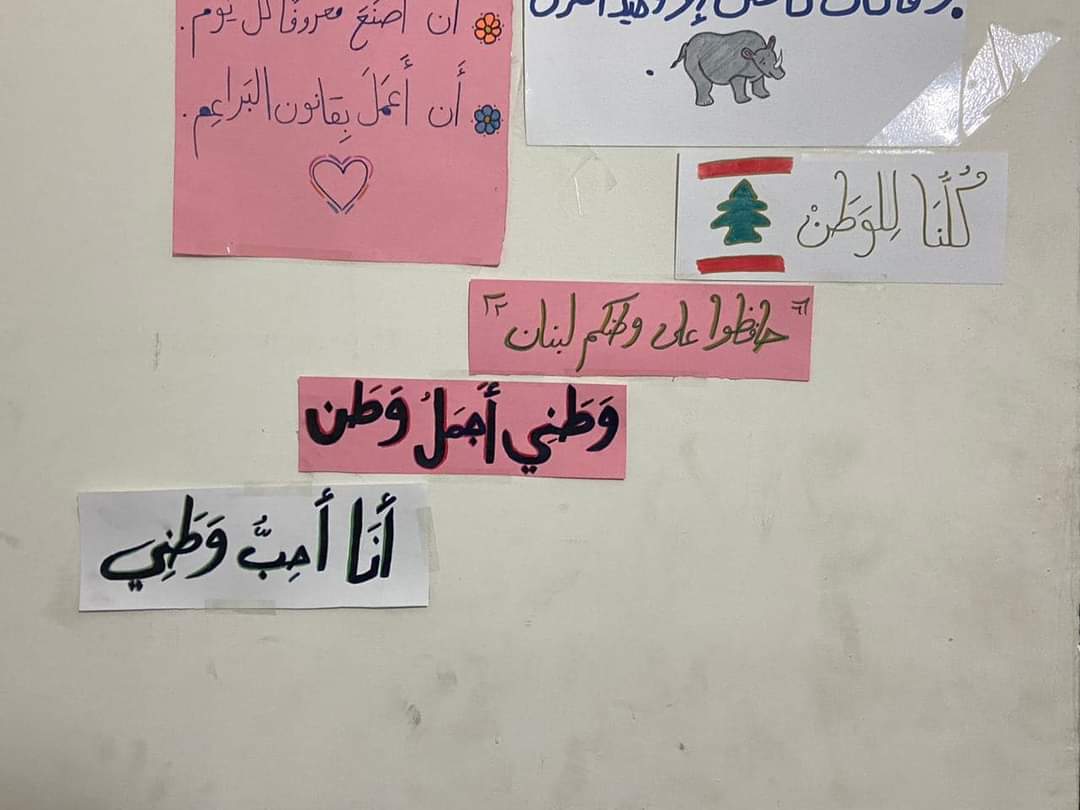 أن أصنَعَ معروفًا كل يوم.
أَن أَعمَلَ بِقانون البَراعِم.
كُلُّنَا لِلوَطَنْ
"حافظوا على وطنكم لبنان"
وَطَنِي أَجمَلُ وَطَن
أَنَا أُحِبُّ وَطَنِي